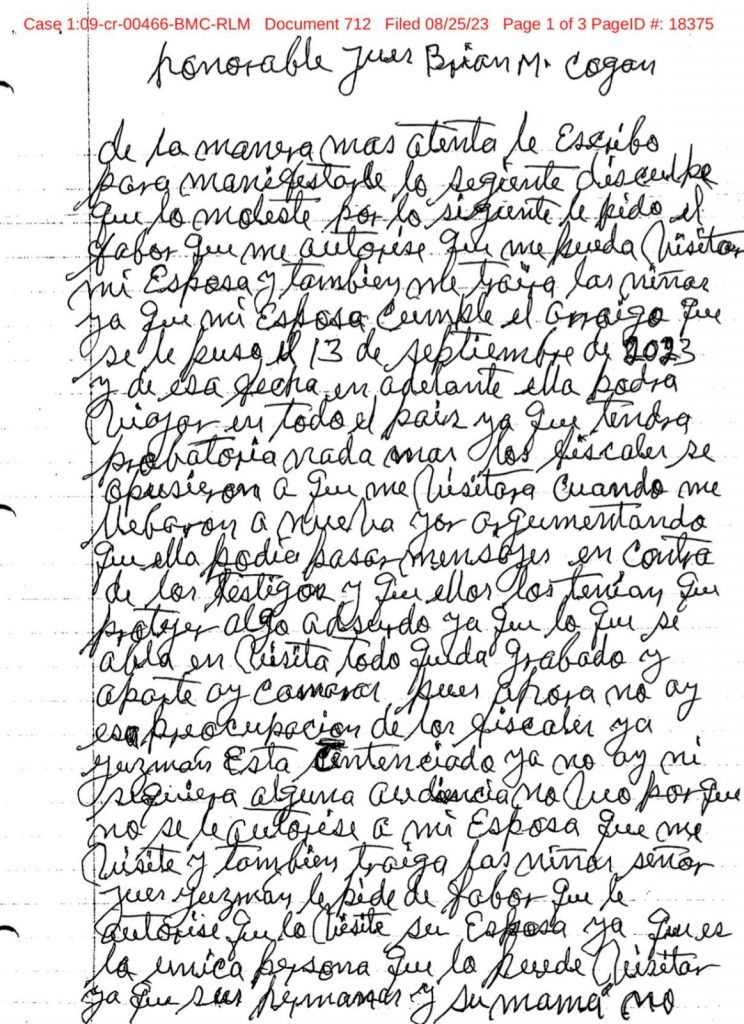 Case 1:09-cr-00466-BMC-RLM Document 712 Filed 08/25/23 Page 1 of 3 PageID #: 18375
honorable Jues Brian M. Cogan
de la manera mas atenta le Escribo
para manifestarle lo segiente disculpe
que lo moleste por lo sigiente le pido el
fabor que me autorise que me pueda Visitar
mi Esposa y tambien me traiga las niñas
ya que mi Esposa Cumple el arraigo que
se le puso el 13 de septiembre de 2023
y de esa fecha en adelante ella podra
Viajar en todo el pais ya que tendra
probatoria nada mas los fiscales se
opusieron a que me Visitara cuando me
llebaron a nueva yor argumentando
que ella podia pasar mensajes en contra
de los testigos y que ellos los tenian que
protejer algo adsurdo ya que lo que se
abla en Visita todo queda grabado y
aparte ay camaras pues ahora no ay
esa preocupacion de los fiscales ya
guzman Esta Sentenciado ya no ay ni
siquiera alguna audiencia no Veo por que
no se le autorise a mi Esposa que me
Visite y tambien traiga las niñas señor
jues guzman le pide de fabor que le
autorise que lo Visite su Esposa ya que es
la unica persona que lo puede Visitar
ya que sus hermanas y su mamá no